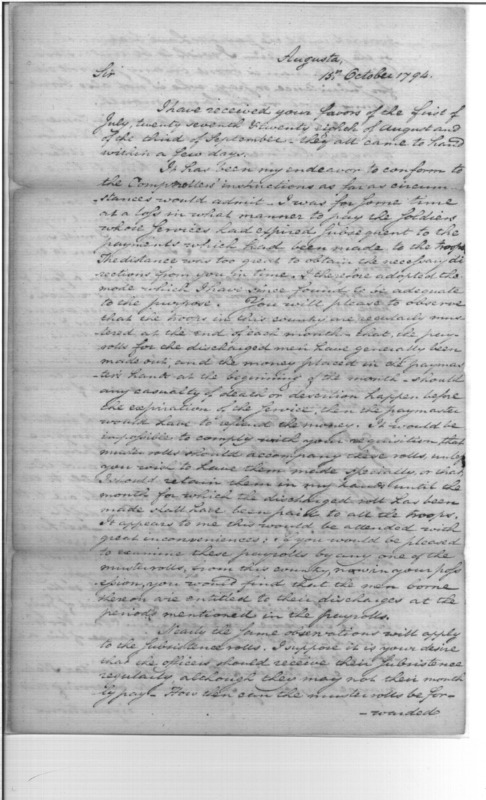 Augusta,
Sir 15th October 1794.
I have received your favors of the first of
July, twenty seventh & twenty eighth of August and
of the third of September - they all came to hand
within a few days.
It has been my endeavor to conform to
the Comptrollers' instructions as far as circum
stances would admit - I was for some time
at a loss in what manner to pay the soldiers
whose services had expired subsequent to the
payments which had been made to the troops
The distance was too great to obtain the necessary di
rections from you in time, & therefore adopted the
mode which I have since found to be adequate
to the purpose. You will please to observe
that the troops in this country are regularly mus
tered at the end of each month - the pay-
rolls for the discharged men have generally been
made out, and the money placed in the paymas
ters hands at the beginning of the month - should
any casualty of death or desertion happen before
the expiration of the service, then the paymaster
would have to refund the money. It would be
impossible to comply with your requisition, that
muster rolls should accompany these rolls, unless
you wish to have them made specially, or that
I should retain them in my hands until the
month for which the discharged roll has been
made shall have been paid to all the troops.
It appears to me this would be attended with
great inconveniences; if you would be pleased
to examine these payrolls by any one of the
musterolls, from this country, now in your poss
ession, you would find that the men borne
thereon are entitled to their discharges at the
periods mentioned in the payrolls.
Nearly the same observations will apply
to the subsistence rolls. I suppose it is your desire
that the officers should receive their subsistence
regularly, although they may not their month
ly pay - How then can the muster rolls be for-
-warded